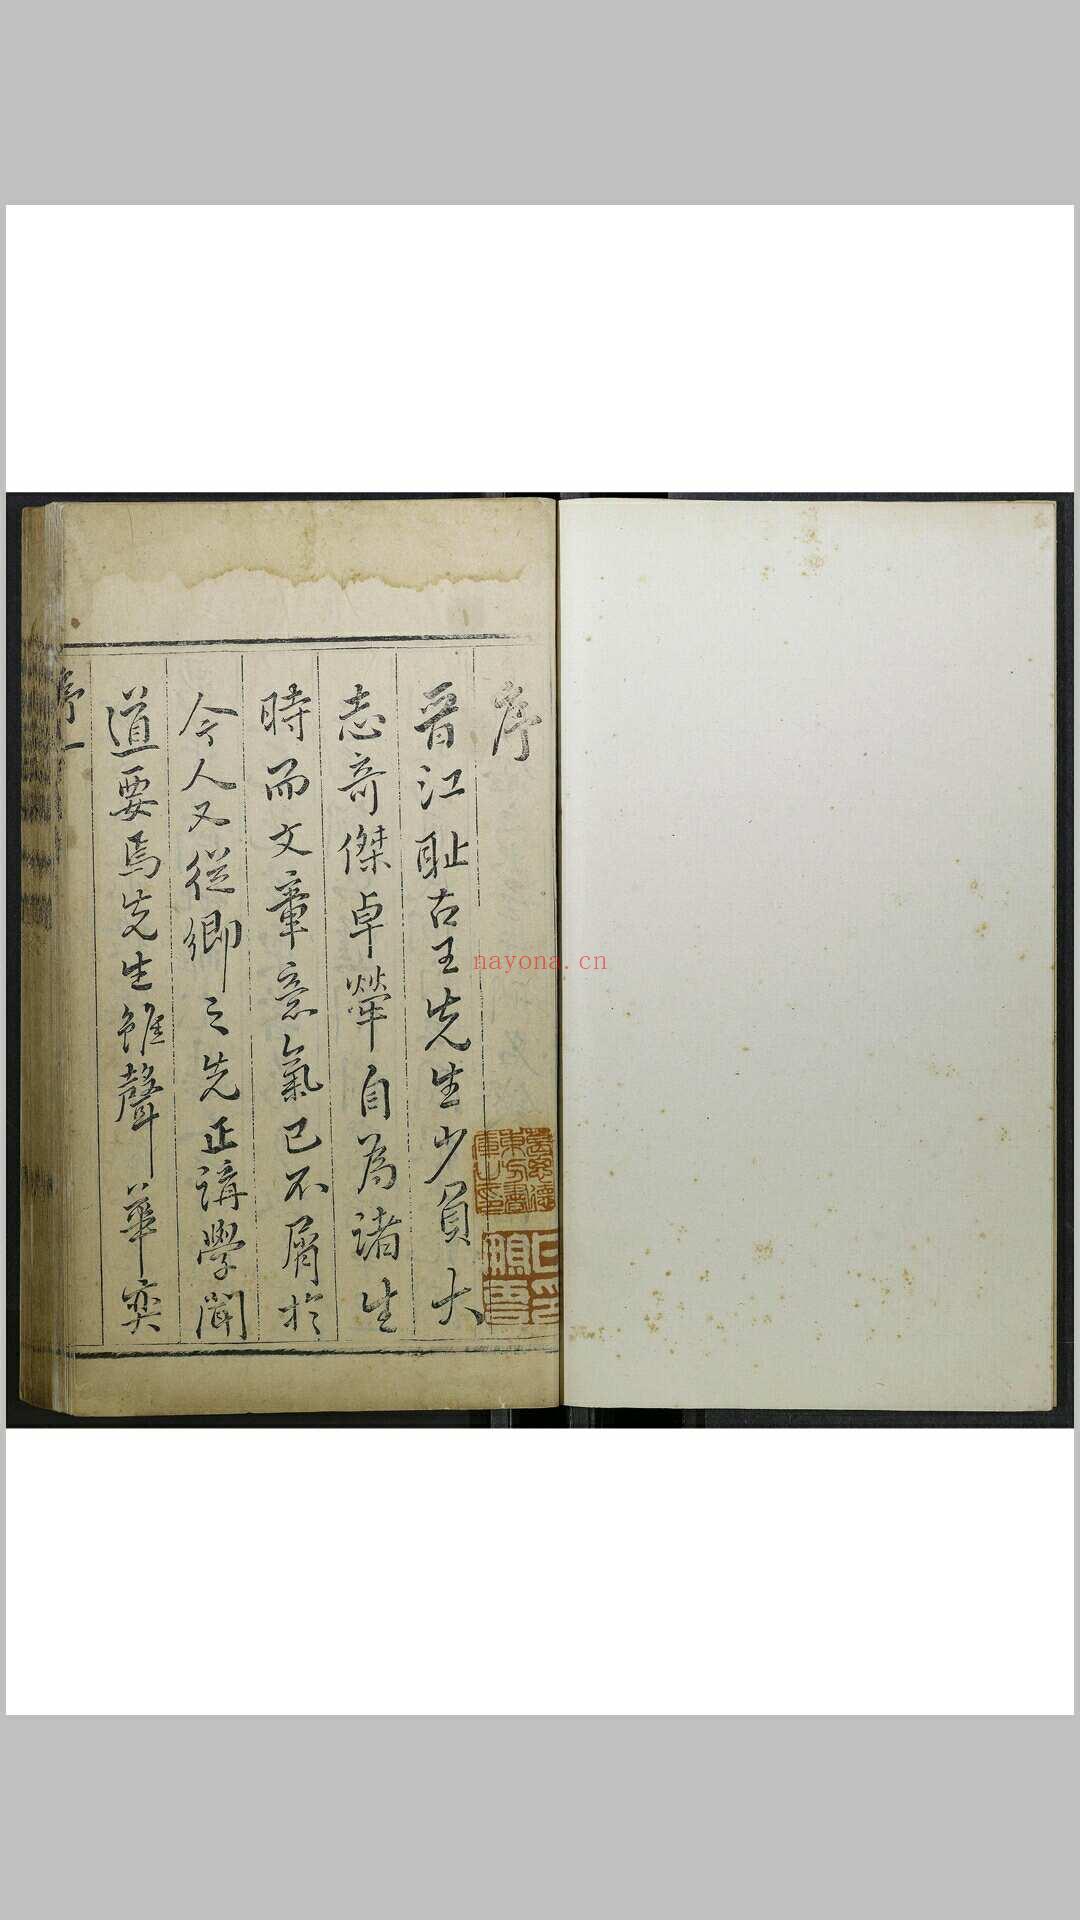 序
晉江耻古王先生少負大
志奇傑卓犖自為諸生
時而文章意氣已不屑於
今人又從鄉之先正講學聞
道要焉先生雖聲華奕
序一
nayona.cn